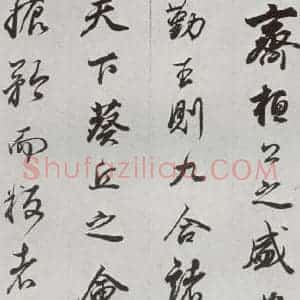 齊桓公之盛
勤王則九合諸
天下葵丘之會
振矜而叛者